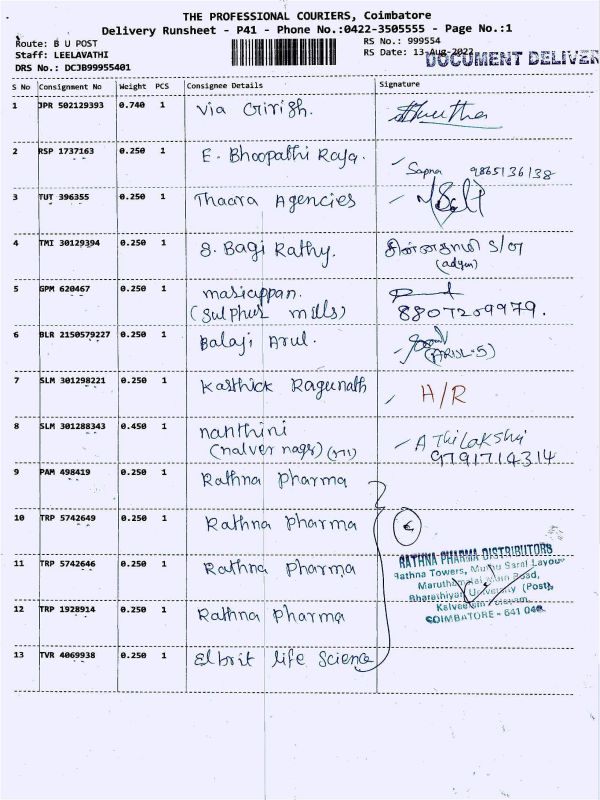 THE PROFESSIONAL COURIERS, Coimbatore
Delivery Runsheet - P41 - Phone No.:0422-3505555 - Page No.:1
Route: B U POST
RS No.: 999554
Staff: LEELAVATHI
RS Date: 13-Aug-2022
DOCUMENT DELIVER
DRS No.: DCJB99955401
S No Consignment No Weight PCS Consignee Details Signature
1 JPR 502129393 0.740 1 Via Girish.
2 RSP 1737163 0.250 1 E. Bhoopathi Raja. Sapna 9865136138
3 TUT 396355 0.250 1 Thaara Agencies
4 TMI 30129394 0.250 1 S. Bagi Rathy. சின்னதாயி S/O
(adyan)
5 GPM 620467 0.250 1 masicuppan.
(Sulphur mills) 8807209979.
6 BLR 2150579227 0.250 1 Balaji Arul. (ARUL.S)
7 SLM 301298221 0.250 1 Karthick Ragunath H/R
8 SLM 301288343 0.450 1 nanthini A Thilakshi
(nalver nagr) 9791714314
9 PAM 498419 0.250 1 Rathna pharma
10 TRP 5742649 0.250 1 Rathna pharma
11 TRP 5742646 0.250 1 Rathna pharma
12 TRP 1928914 0.250 1 Rathna pharma
13 TVR 4069938 0.250 1 Elbrit life Science
RATHNA PHARMA DISTRIBUTORS
Rathna Towers, Muthu Saral Layout
Maruthamalai Main Road,
Bharathiyar University (Post),
Kalveeram Palayam,
COIMBATORE - 641 046.